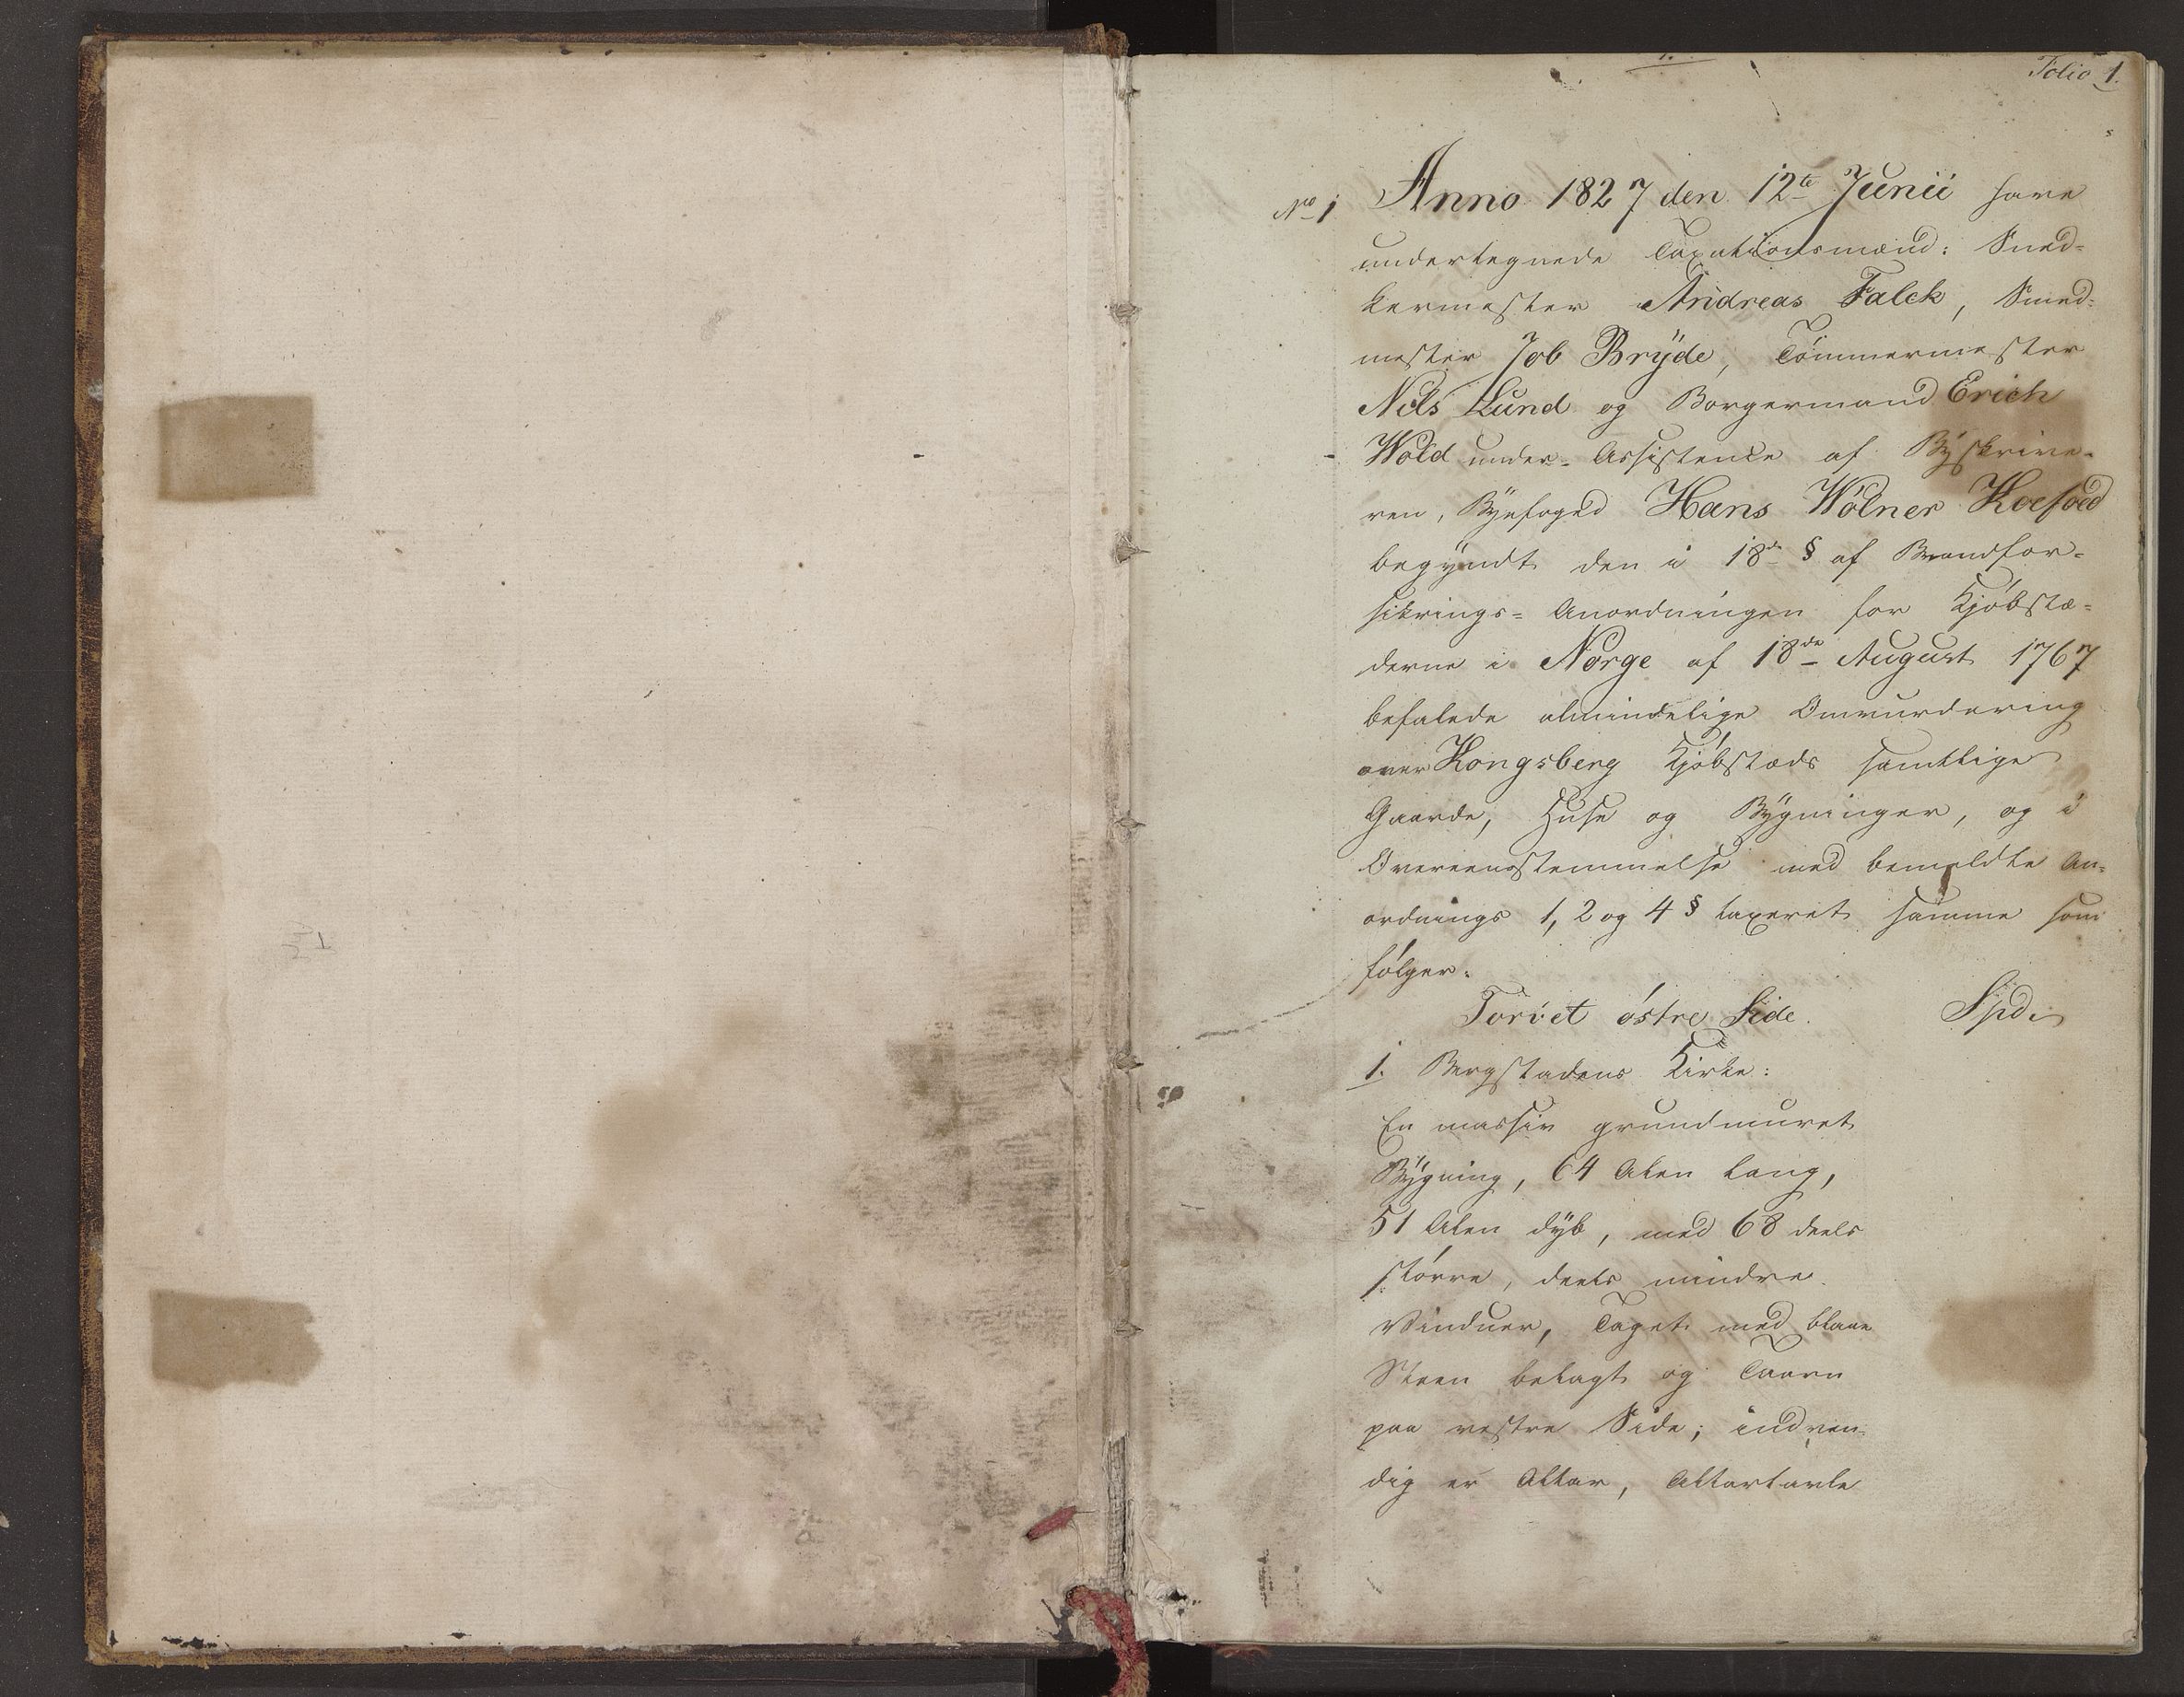 Folio 1.
No 1 Anno 1827 den 12te Junii have
undertegnede Taxationsmænd: Sned-
kermester Andreas Falck, Smed-
mester Job Brÿde, Tömmermester
Niels Lund og Borgermand Erich
Wold under Assistence af Bÿskrive-
ren, Bÿefoged Hans Wölner Koefoed
begÿndt den i 18de § af Brandfor-
sikrings-Anordningen for Kjöbstæ-
derne i Norge af 18de August 1767
befalede almindelige Omvurdering
over Kongsberg Kjöbstæds samtlige
Gaarde, Huse og Bÿgninger, og i
Overeensstemmelse med bemeldte An-
ordnings 1, 2 og 4 § taxeret samme som
fölger.
Torvet östre Side. Spd.
1. Bergstadens Kirke:
En massiv grundmuret
Bÿgning, 64 Alen lang,
51 Alen dÿb, med 68 deels
större, deels mindre
Vinduer, Taget med blaae
Steen belagt og Taarn
paa vestre Side; indven-
dig er Altar, Altartavle